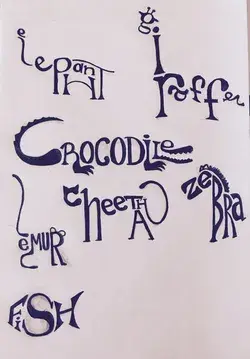 elePHanT
giraffe
CROCODiLe
cHeeTAH
zeBRa
LeMUR
FiSH